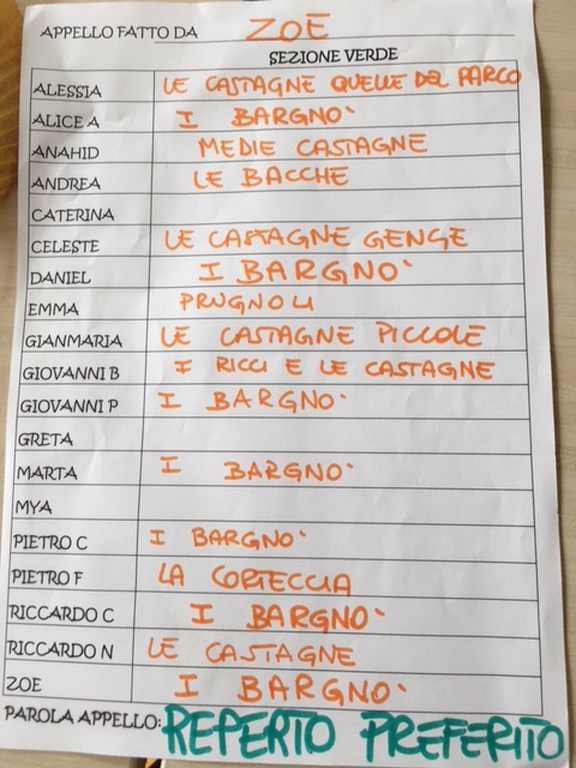 APPELLO FATTO DA ZOE
SEZIONE VERDE
ALESSIA LE CASTAGNE QUELLE DEL PARCO
ALICE A I BARGNO'
ANAHID MEDIE CASTAGNE
ANDREA LE BACCHE
CATERINA
CELESTE LE CASTAGNE GENGE
DANIEL I BARGNO'
EMMA PRUGNOLI
GIANMARIA LE CASTAGNE PICCOLE
GIOVANNI B I RICCI E LE CASTAGNE
GIOVANNI P I BARGNO'
GRETA
MARTA I BARGNO'
MYA
PIETRO C I BARGNO'
PIETRO F LA CORTECCIA
RICCARDO C I BARGNO'
RICCARDO N LE CASTAGNE
ZOE I BARGNO'
PAROLA APPELLO: REPERTO PREFERITO